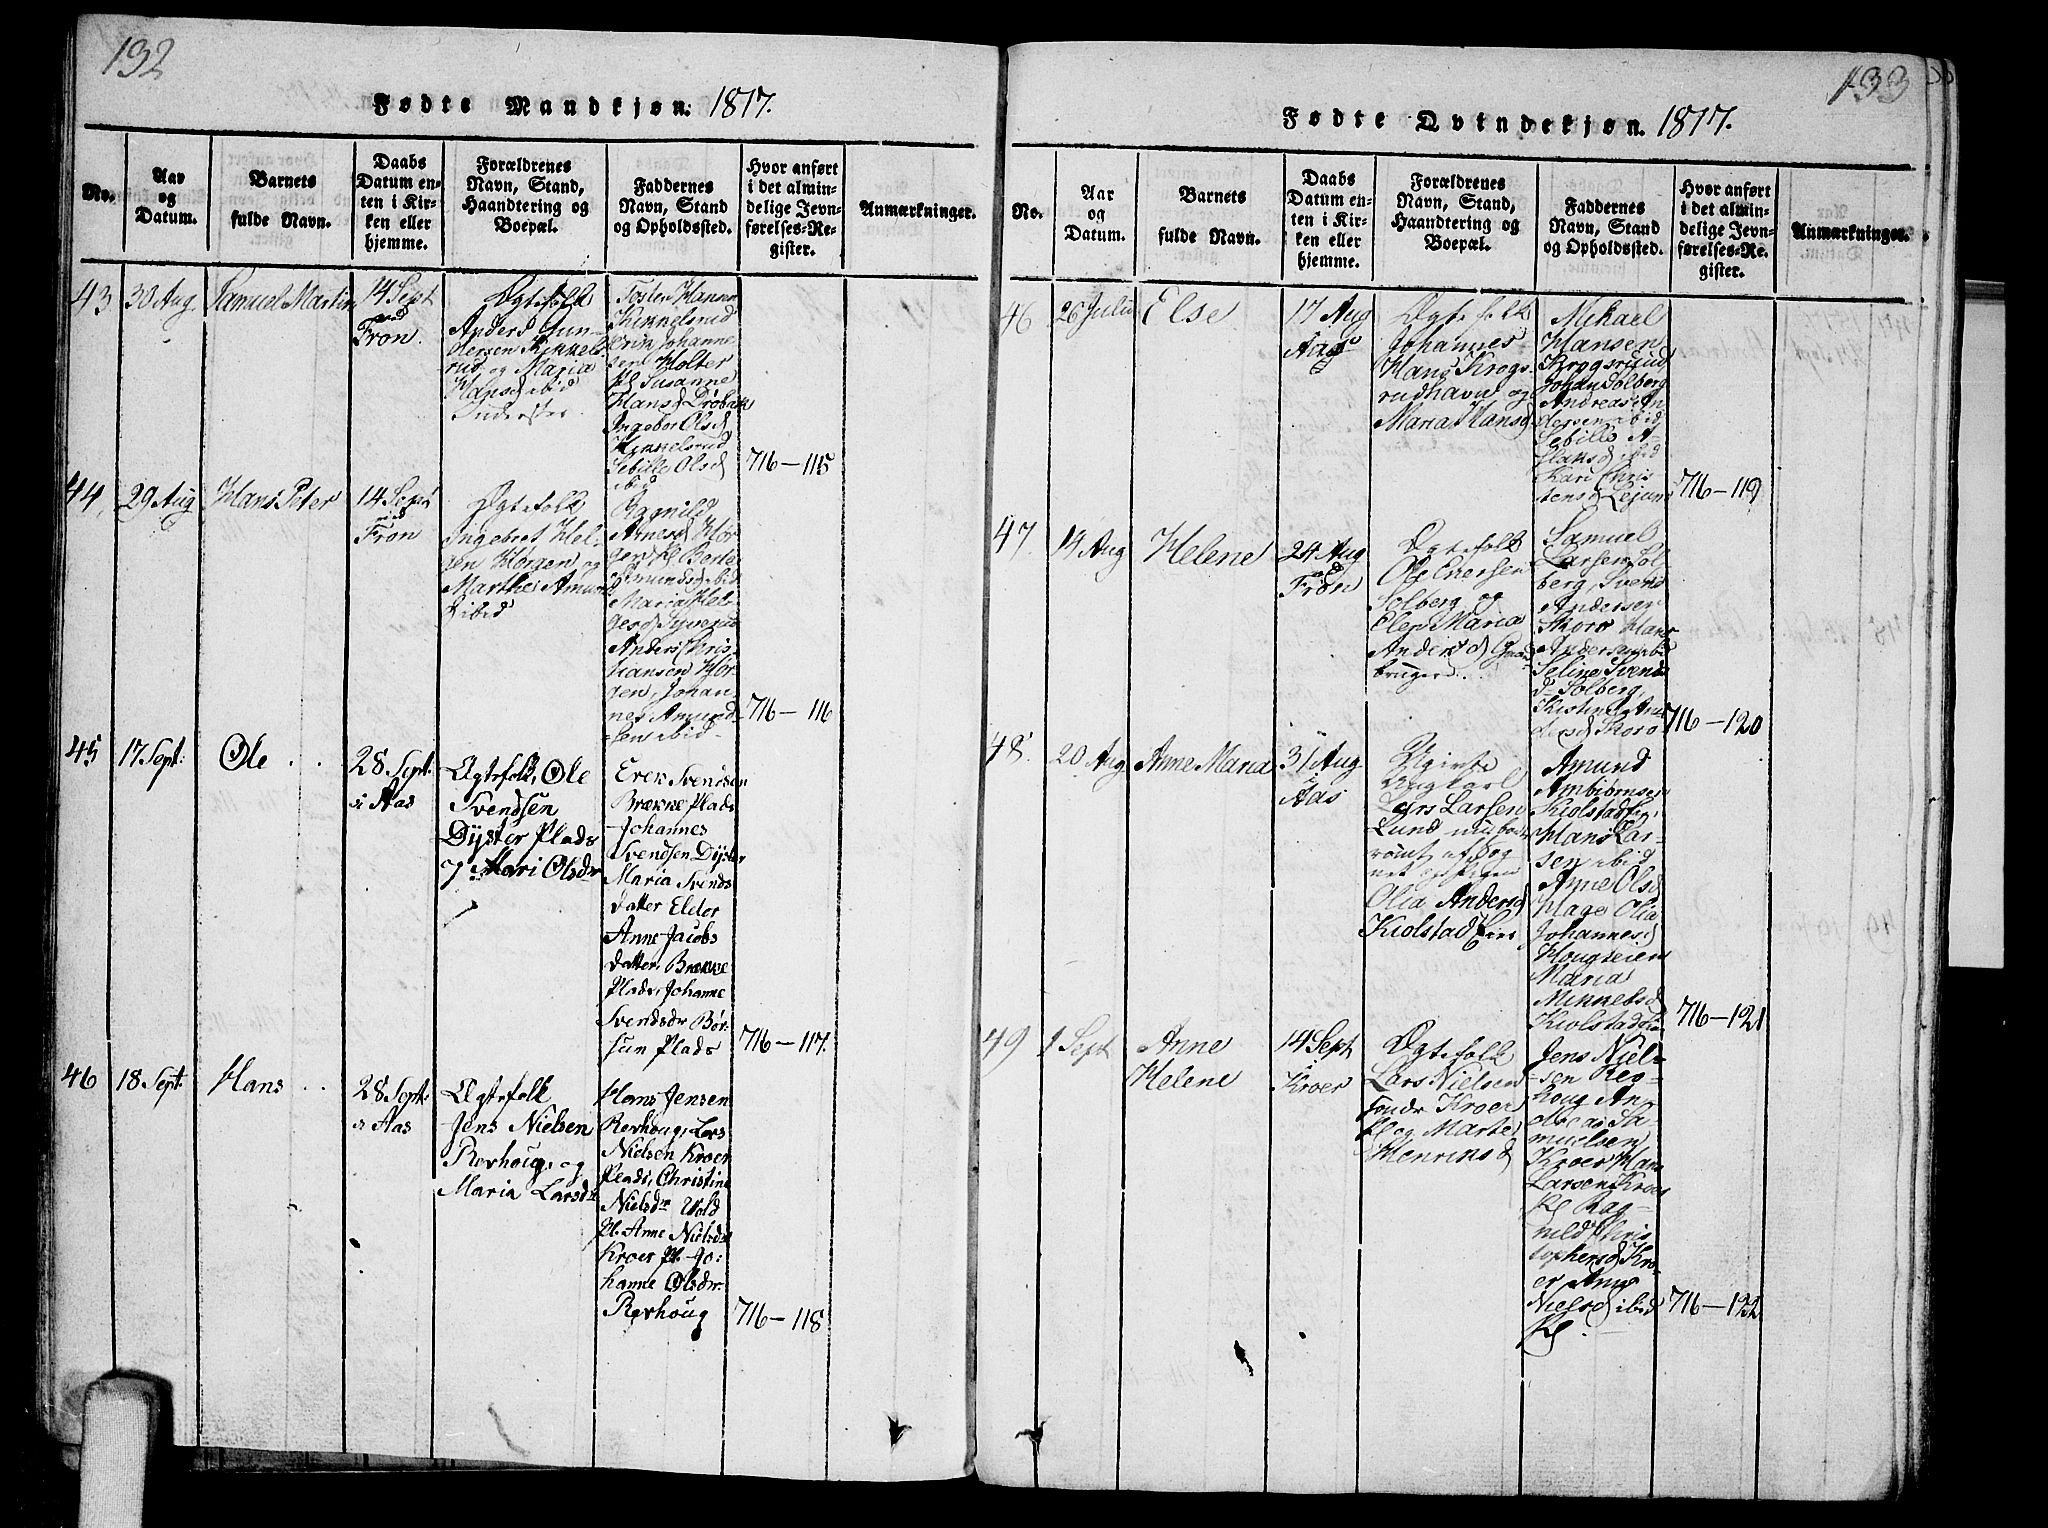 132
Fødte Mandkjøn. 1817.
No.
Aar og Datum.
Barnets fulde Navn.
Daabs Datum enten i Kirken eller hjemme.
Forældrenes Navn, Stand, Haandtering og Boepæl.
Faddernes Navn, Stand og Opholdssted.
Hvor anført i det almindelige Jevnførelses-Register.
Anmærkninger.
43
30 Aug
Samuel Martin
14 Sept
ved
Fron.
Ægtefolk
Anders Gun-
dersen Kinkels-
rud og Maria
Hansd ibid
Inderster
Tosten Hansen
Kinkelsrud
Erik Johanne
sen Holter
Pl Susanne
Hansd Drøbak
Ingebor Olsd
Kinkelsrud
Sebille Olsd
ibid
716-115
44,
29 Aug
Hans Peter
14 Sept
ved
Fron
Ægtefolk
Ingebret Hel-
gen Horgen, og
Marthe Amund
d ibid
Ragnild
Arnesd Hor-
gen Pl Berte
Amundsd ibid
Maria Hel-
gesd
Anders Chris-
tiansen Hor-
gen, Johan-
nes Amund-
sen ibid
716-116
45
17 Sept:
Ole . .
28 Sept:
i Aas
Ægtefolk, Ole
Svendsen
Dyster Plads
og Mari Olsdr
Erek Svendsen
Brække Plads
Johannes
Svendsen Dyster
Maria Svends
datter Eldor
Anne Jacobs
datter Brække
Plads, Johanne
Svendsdr Bør-
sum Plads
716-117.
46
18 Sept:
Hans . .
28 Sept:
i Aas
Ægtefolk
Jens Nielsen
Revhoug, og
Maria Larsdr
Hans Jensen
Revhoug, Lars
Nielsen Kroer
Plads, Christine
Nielsdr Wold
Pl. Anne Nielsdr
Kroer Pl. Jo:
hanne Olsdr.
Revhoug
716-118
133
Fødte Qvindekjøn. 1817.
No.
Aar og Datum.
Barnets fulde Navn.
Daabs Datum enten i Kirken eller hjemme.
Forældrenes Navn, Stand, Haandtering og Boepæl.
Faddernes Navn, Stand og Opholdssted.
Hvor anført i det almindelige Jevnførelses-Register.
Anmærkninger.
46
26 Julii
Else
17 Aug
Aas
Ægtefolk
Johannes
Hans Krogs-
rudhavn og
Maria Hansd
Mikael
Hansen
Krogsruud
Johan Solberg
Andreas An
dersen ibid
Sebille
ibid
Kari Chris
tensd
716-119
47.
14 Aug
Helene
24 Aug
ved
Fron
Ægtefolk
Ole Enersen
Solberg og
Elen Maria
Andersd Gaard
bruger.
Samuel
Larsen Sol
berg, Svend
Andersen
Skoro Hans
Andersen ibid
Seline Svend
d Solberg,
Kistine An-
dersd Skoro
716-120
48.
20 Aug
Anne Maria
31 Aug
Aas
Ugivte
Ungkarl
Lars Larsen
Lund
Olia Andersd
Kiolstad Ein
Amund
Ambiørnsen
Kiolstad
Hans Lar-
sen ibid
Anne Olsd
Hage Olia
Johannesd
Hougteien
Maria
Mikkelsd
Kiolstad
716-121
49
1 Sept
Anne
Helene
14 Sept
i
Kroer
Ægtefolk
Lars Nielsen
Kroer
Pl og Marte
Henriksd
Jens Niel-
sen Rev-
houg An-
dreas Sa-
muelsen
Kroer Hans
Larsen Kroer
Pl Rag-
nild Chris
tophersd Kro-
er Anne
Nielsd ibid
Pl.
716-122